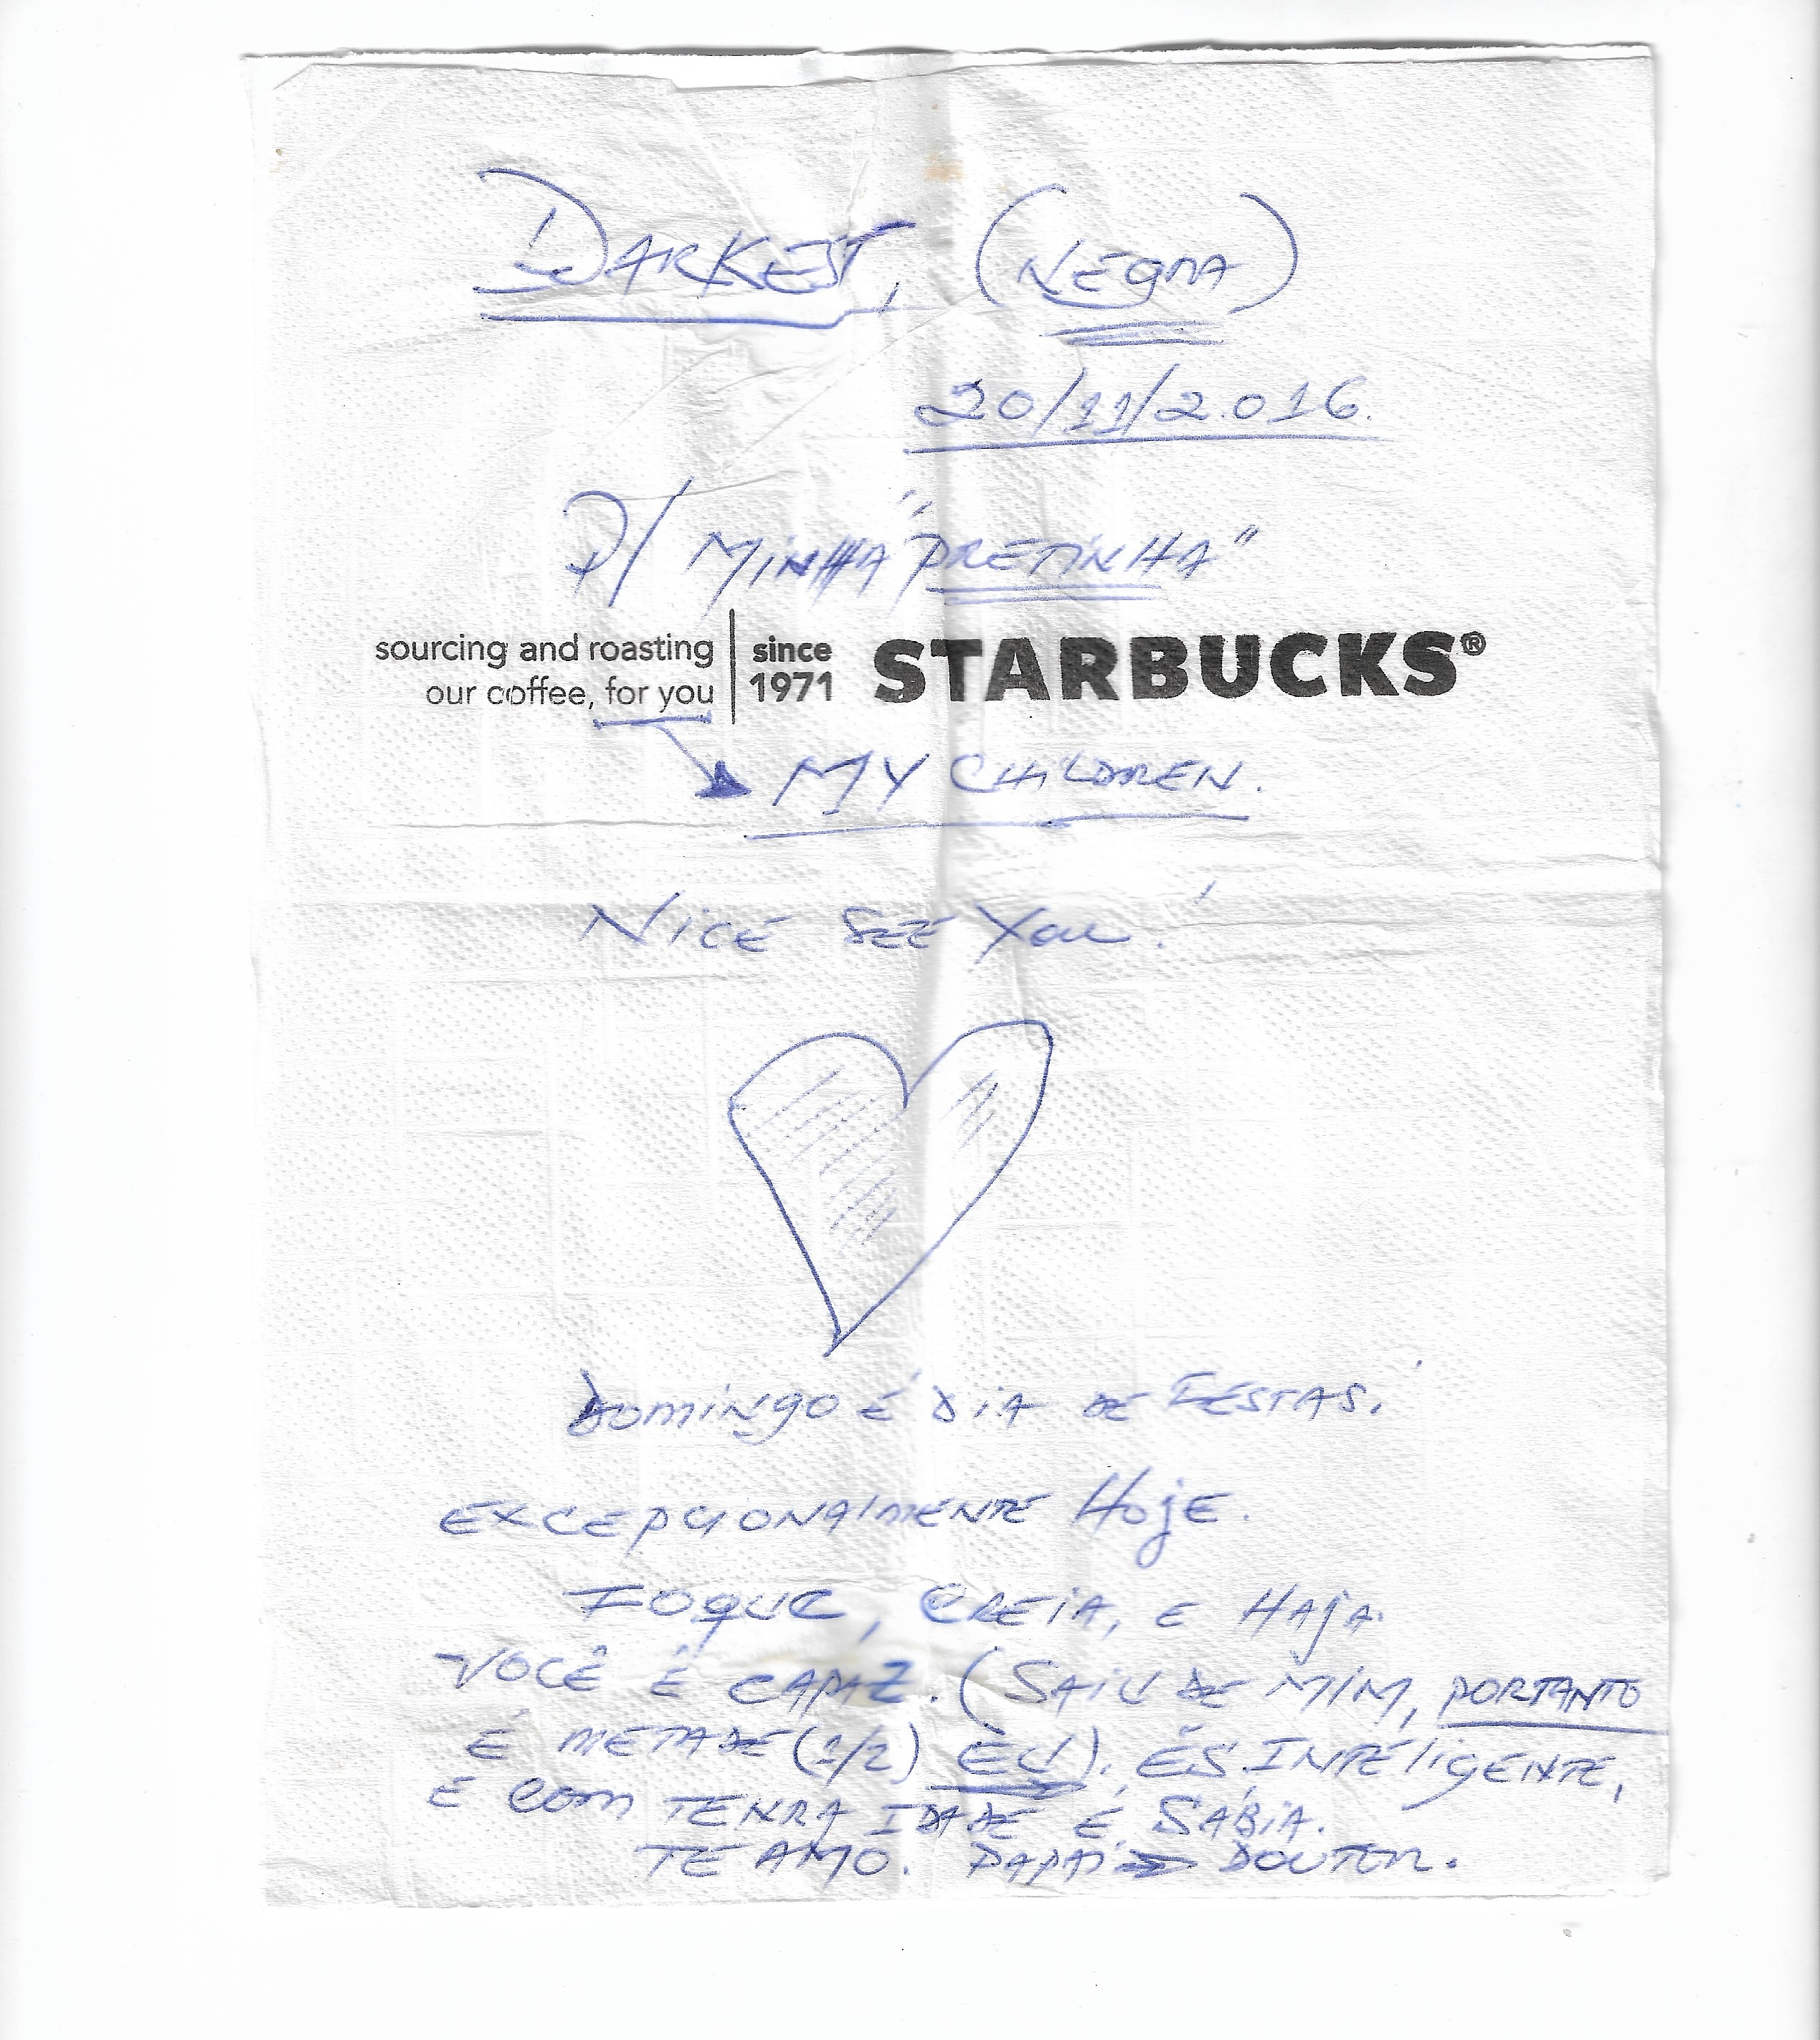 DARKEST, (NEGRA)
20/11/2.016.
P/ MINHA "PRETINHA"
sourcing and roasting
our coffee, for you
since
1971
STARBUCKS®
MY CHILDREN.
NICE SEE YOU!
DOMINGO É DIA DE FESTAS.
EXCEPCIONALMENTE HOJE.
FOQUE, CREIA, E HAJA.
VOCÊ É CAPAZ. (SAIU DE MIM, PORTANTO
É METADE (1/2) EU). ÉS INTELIGENTE,
E COM TENRA IDADE É SÁBIA.
TE AMO. PAPAI DOUTOR.